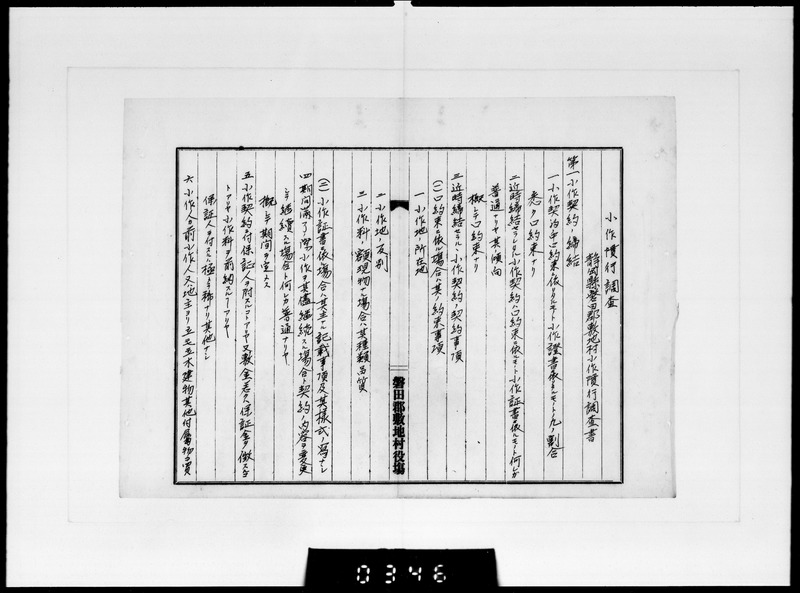 小作慣行調査
静岡縣磐田郡敷地村小作慣行調査書
第一 小作契約ノ締結
一 小作契約ハ口約束ニ依ルモノト小作證書ニ依ルモノトノ凡ノ割合
悉ク口約束ナリ
二 近時締結セラレタル小作契約ハ口約束ニ依ルモノト小作証書ニ依ルモノト何レガ
普通ナリヤ其傾向
概シテ口約束ナリ
三 近時締結セラルヽ小作契約ノ契約事項
(一) 口約束ニ依ル場合ハ其ノ約束事項
一 小作地ノ所在地
二 小作地ノ反別
三 小作料ノ額現物ナル場合ハ其種類品質
(二) 小作証書ニ依ル場合ハ其主ナル記載事項及其様式ノ寫 ナシ
四 期間満了ノ際小作ヲ其儘継続スル場合ト契約ノ内容ヲ変更
シテ継続スル場合ト何レガ普通ナリヤ
概シテ期間ヲ定メス
五 小作契約ニ付保証人ヲ附スルコトアリヤ又敷金若クハ保証金ヲ徴スルコ
トアリヤ小作料ヲ前納スルコトアリヤ
保証人ヲ付スルハ極メテ稀ナリ其他ナシ
六 小作人ガ前小作人又ハ地主ヨリ立毛立木建物其他付属物ヲ買
磐田郡敷地村役場
0346